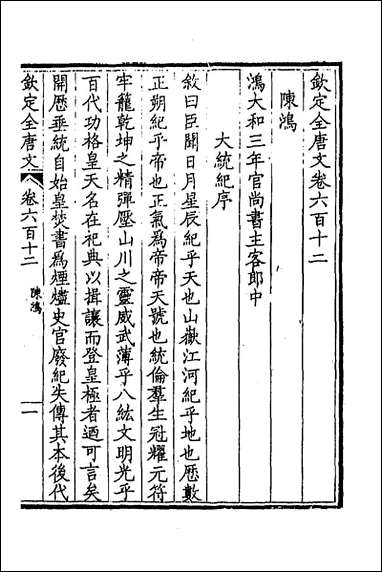 欽定全唐文卷六百十二
陳鴻
鴻大和三年官尚書主客郎中
大統紀序
敘曰臣聞日月星辰紀乎天也山嶽江河紀乎地也歷數
正朔紀乎帝也正氣為帝帝天號也統倫羣生冠耀元符
牢籠乾坤之精彈壓山川之靈威武薄乎八紘文明光乎
百代功格皇天名在祀典以揖讓而登皇極者迺可言矣
開歷垂統自始皇焚書為煙燼史官廢紀失傳其本後代
欽定全唐文
卷六百十二
陳鴻
一